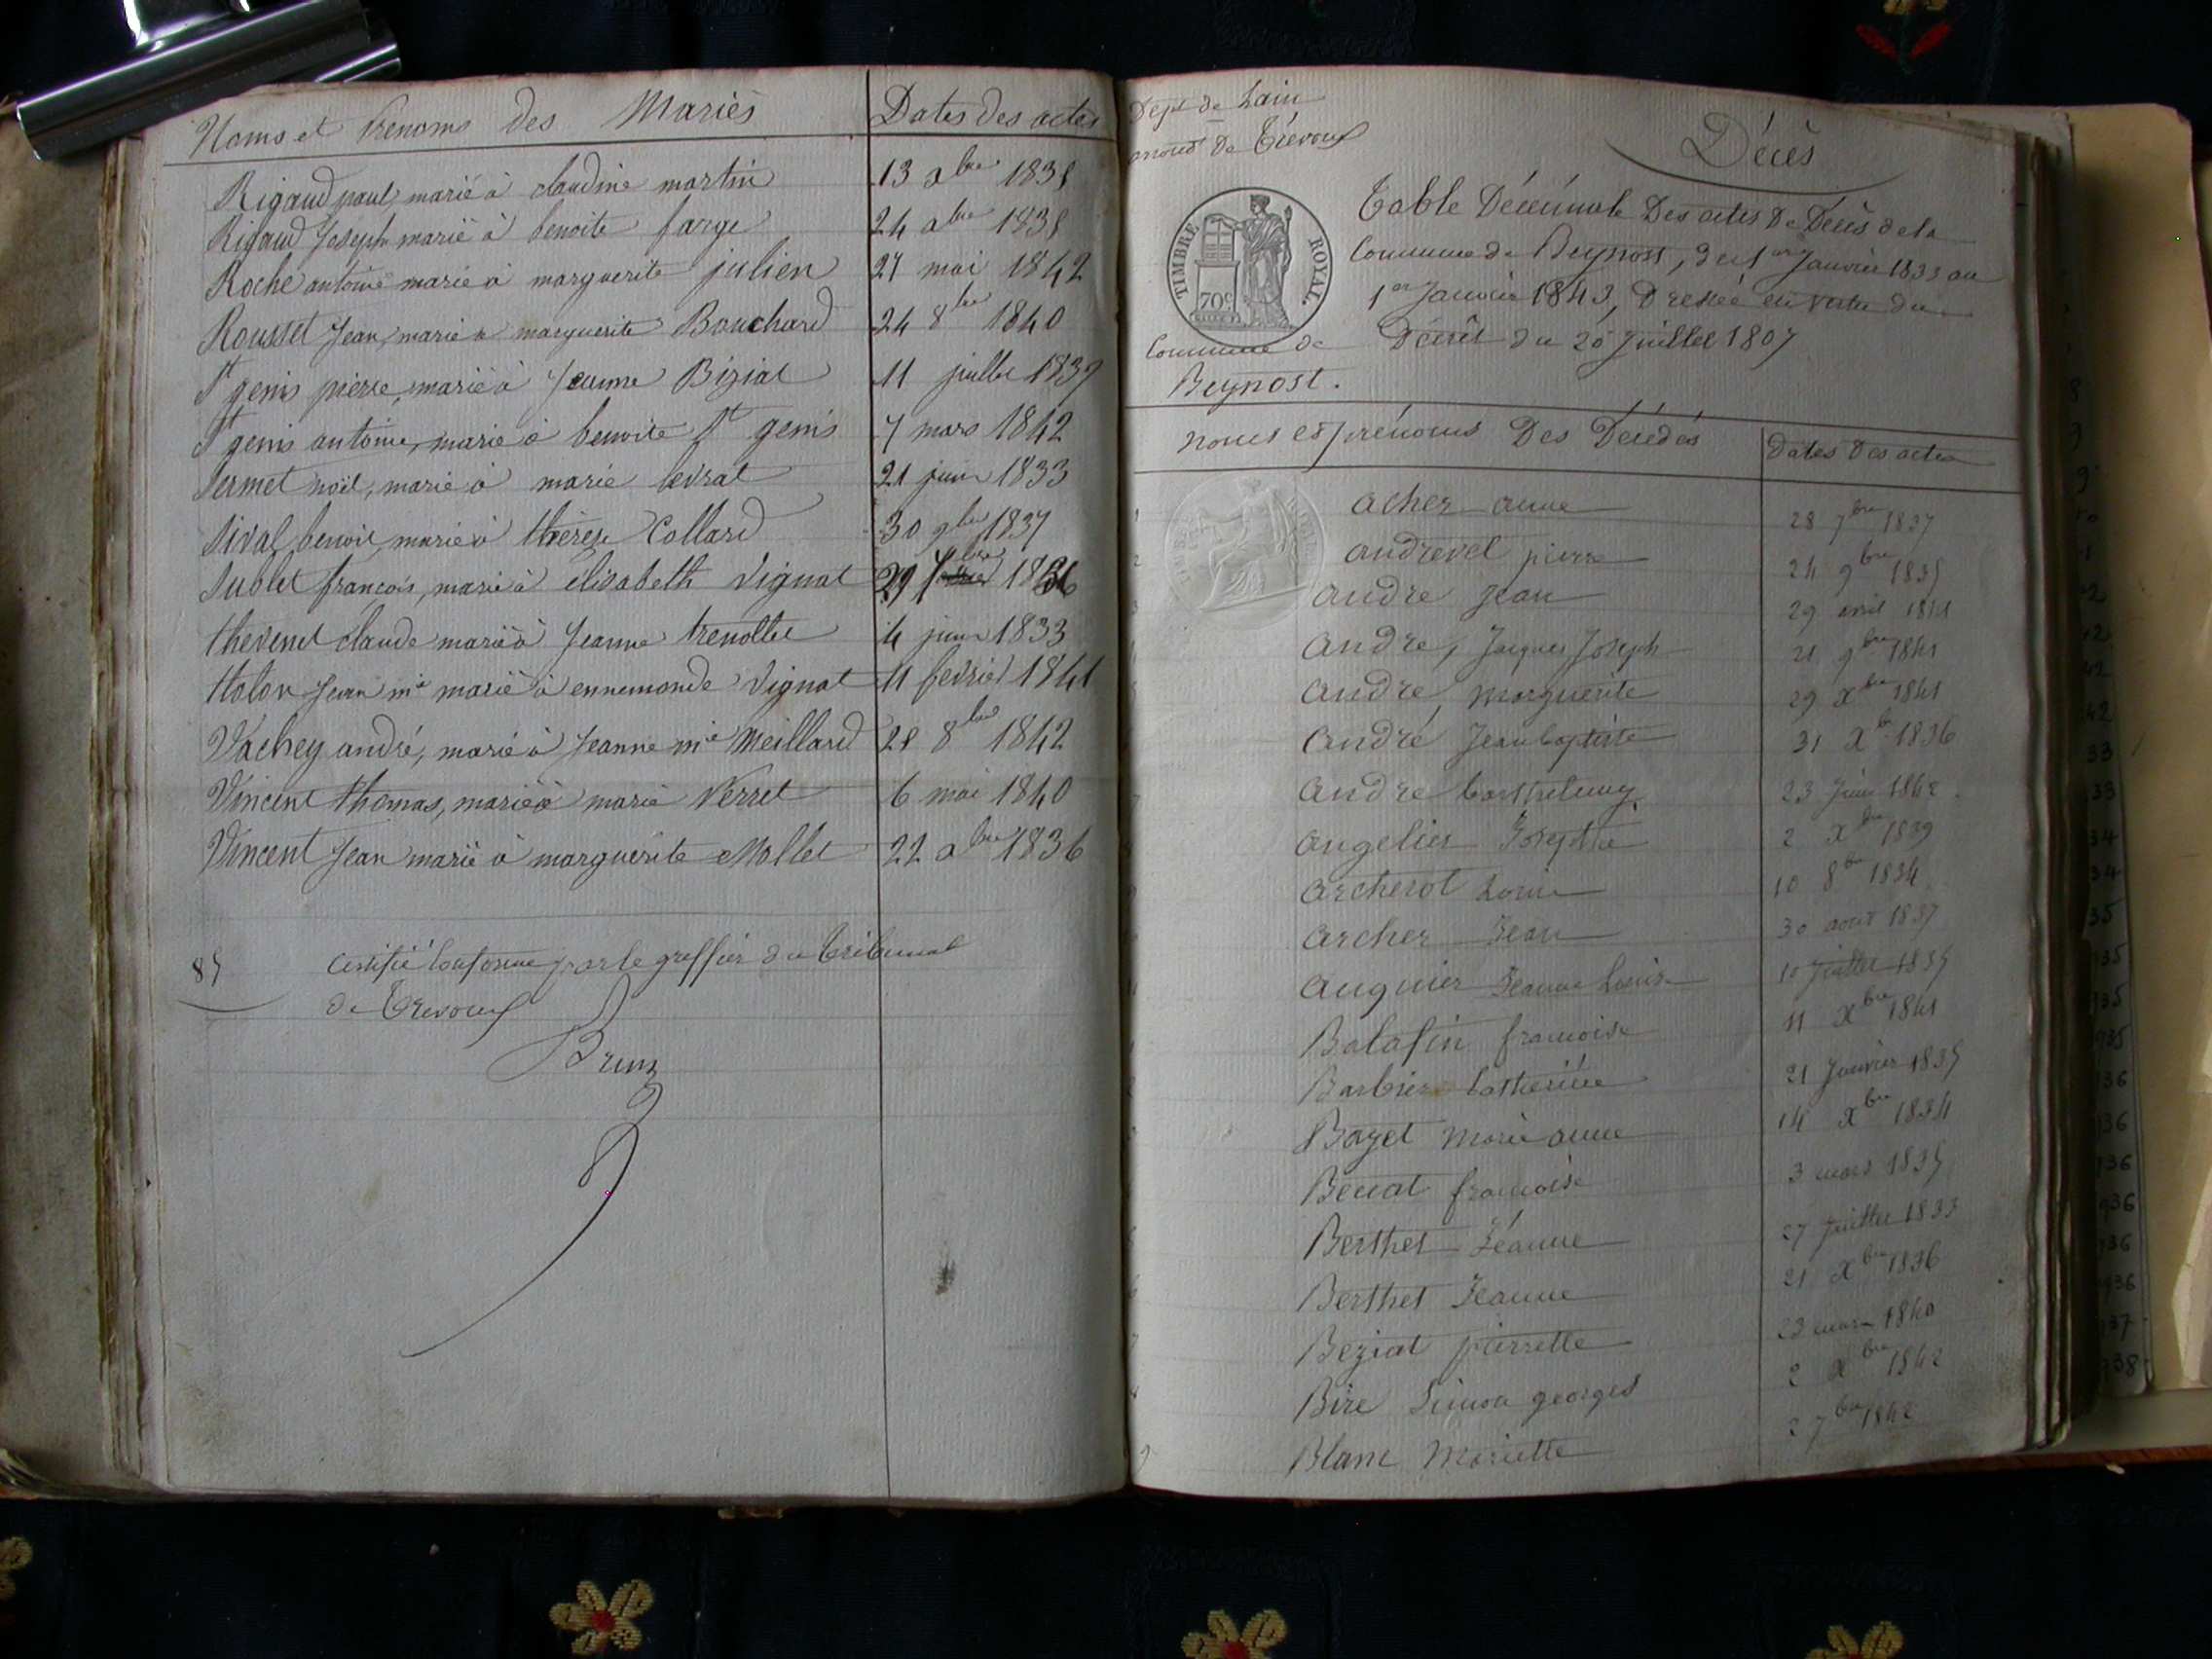 Noms et Prenoms des Mariés Dates des actes
Rigaud paul, marié à claudine martin 13 xbre 1838
Rigaud Joseph marié à benoite farge 24 xbre 1838
Roche antoine marié à marguerite julien 27 mai 1842
Rousset Jean, marié à marguerite Bouchard 24 8bre 1840
St genis pierre, marié à Jeanne Biziat 11 juillet 1839
St genis antoine, marié à benoite St genis 7 mars 1842
Sermet noël, marié à marie levrat 21 juin 1833
Sival benoit, marié à thérèse Collard 30 9bre 1837
Sublet françois, marié à élisabeth Vignat 29 1836
thevenet claude marié à Jeanne trenollet 4 juin 1833
tholon Jean mie marié à ennemonde Vignat 11 fevrier 1841
Vachey andré, marié à Jeanne mie Meillard 28 8bre 1842
Vincent thomas, marié à marie Verret 6 mai 1840
Vincent Jean marié à marguerite Mollet 22 xbre 1836
85 certifié conforme par le greffier du tribunal
de Trevoux
Brun
Dept de Lain
arrondt de Trévoux
Décès
TIMBRE ROYAL.
70c
Table Décennale Des actes De Décès de la
Commune de Beynost, du 1er Janvier 1833 au
1er Janvier 1843, Dressée en vertu du
Décret du 20 Juillet 1807
Commune de
Beynost.
noms et prénoms Des Décédés Dates Des actes
acher anne 28 7bre 1837
andrevel pierre 24 9bre 1835
andre Jean 29 avril 1841
andre, Jacques Joseph 21 9bre 1841
andre, marguerite 29 xbre 1841
andré Jean baptiste 31 xbre 1836
andre barthelemy 23 Juin 1842
angelier Josephe 2 xbre 1839
archerot Louise 10 8bre 1834
archer Jean 30 aout 1837
auguier Jeanne Louise 10 Juillet 1835
Balafin françoise 11 xbre 1841
Barbier Catherine 21 Janvier 1835
Bazet Marie anne 14 xbre 1834
Benat françoise 3 mars 1835
Berthet Jeanne 27 Juillet 1833
Berthet Jeanne 21 xbre 1836
Beziat pierrette 23 mars 1840
Bire Simon georges 2 xbre 1842
Blanc Mariette 2 7bre 1842